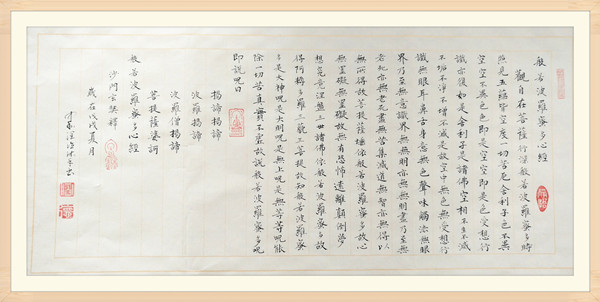 般若波羅蜜多心經
觀自在菩薩行深般若波羅蜜多時
照見五蘊皆空度一切苦厄舍利子色不異
空空不異色色即是空空即是色受想行
識亦復如是舍利子是諸法空相不生不滅
不垢不淨不增不減是故空中無色無受想行
識無眼耳鼻舌身意無色聲味觸法無眼
界乃至無意識界無無明亦無無明盡乃至無
老死亦無老死盡無苦集滅道無智亦無得以
無所得故菩提薩埵依般若波羅蜜多故心
無罣礙無罣礙故無有恐怖遠離顛倒夢
想究竟涅槃三世諸佛依般若波羅蜜多故
得阿耨多羅三藐三菩提故知般若波羅蜜多
是大神咒是大明咒是無上咒是無等等咒能
除一切苦真實不虛故說般若波羅蜜多咒
即說咒曰
揭諦揭諦
波羅揭諦
波羅僧揭諦
菩提薩婆訶
般若波羅蜜多心經
沙門玄奘譯
歲在戊戌夏月